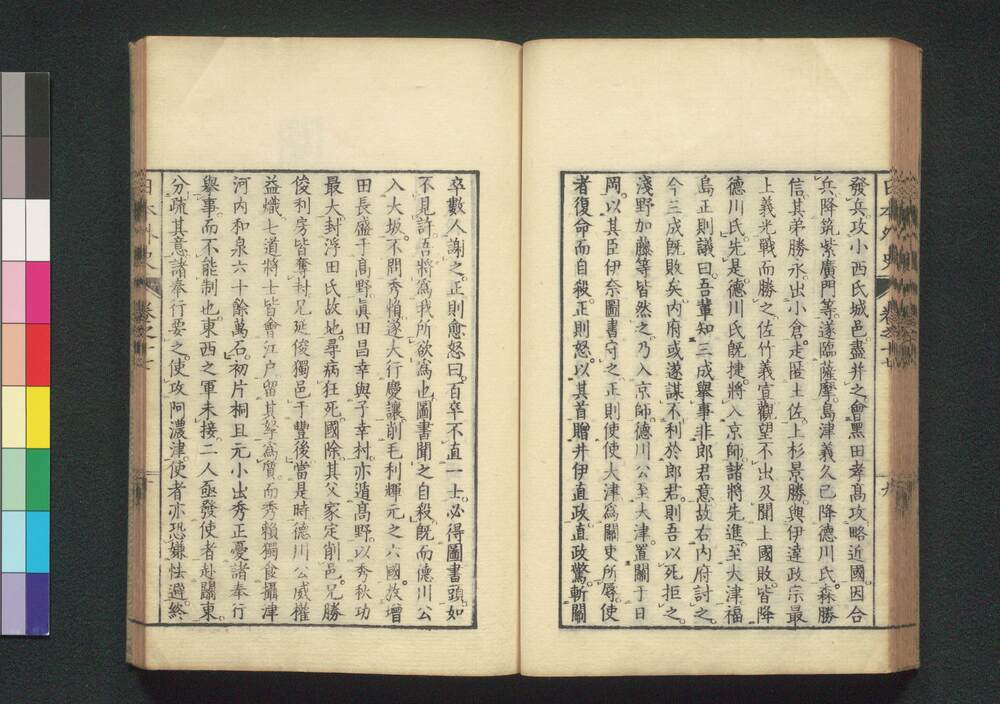 發兵攻小西氏城邑盡并之會黑田孝高攻略近國因合
兵降筑紫廣門等遂臨薩摩島津義久已降德川氏森勝
信其弟勝永出小倉走匿土佐上杉景勝與伊達政宗最
上義光戰而勝之佐竹義宣觀望不出及聞上國敗皆降
德川氏先是德川氏既捷將入京師諸將先進至大津福
島正則議曰吾輩知三成舉事非郎君意故右內府討之
今三成既敗矣內府或遂謀不利於郎君則吾以死拒之
淺野加藤等皆然之乃入京師德川公至大津置關于日
岡以其臣伊奈圖書守之正則使使大津為關吏所辱使
者復命而自殺正則怒以其首贈井伊直政直政驚斬關
九
卒數人謝之正則愈怒曰百卒不直一士必得圖書頭如
不見許吾將為我所欲為也圖書聞之自殺既而德川公
入大坂不問秀賴遂大行慶讓削毛利輝元之六國放增
田長盛于高野真田昌幸與子幸村亦遁高野以秀秋功
最大封浮田氏故地尋病狂死國除其父家定削邑兄勝
俊利房皆奪封兄延俊獨邑于豐後當是時德川公威權
益熾七道將士皆會江戶留其孥為質而秀賴獨食攝津
河內和泉六十餘萬石初片桐且元小出秀正憂諸奉行
舉事而不能制也東西之軍未接二人亟發使者赴關東
分疏其意諸奉行要之使攻阿濃津使者亦恐嫌怯避終
日本外史 卷之十七